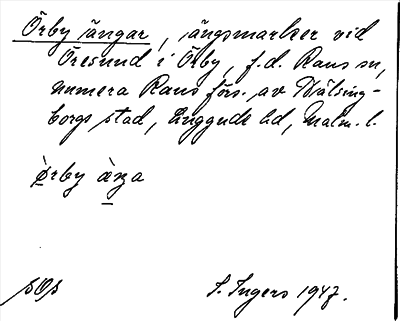 Örby ängar, ängsmarker vid
Öresund i Örby, f.d. Raus sn,
numera Raus förs. av Hälsing-
borgs stad, Luggude hd, Malm. l.
örby àŋa
sOs
S. Ingers 1947.